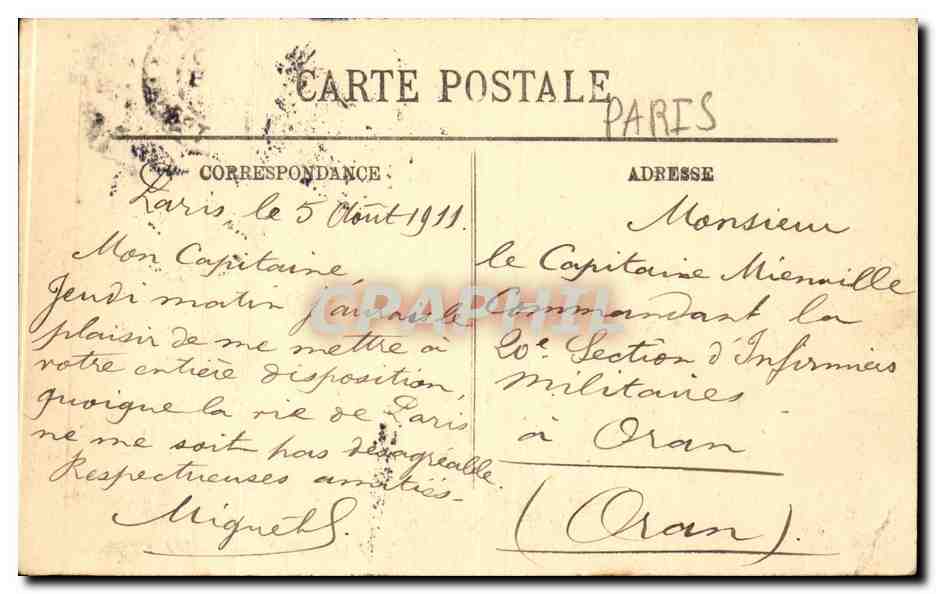 CARTE POSTALE
PARIS
CORRESPONDANCE
Paris, le 5 Août 1911.
Mon Capitaine,
Jeudi matin j'aurai le
plaisir de me mettre à
votre entière disposition,
quoique la vie de Paris
ne me soit pas désagréable.
Respectueuses amitiés.
Miguet
ADRESSE
Monsieur
le Capitaine Mienville
Commandant la
20e Section d'Infirmiers
militaires
à Oran
(Oran).
CPAPHIL